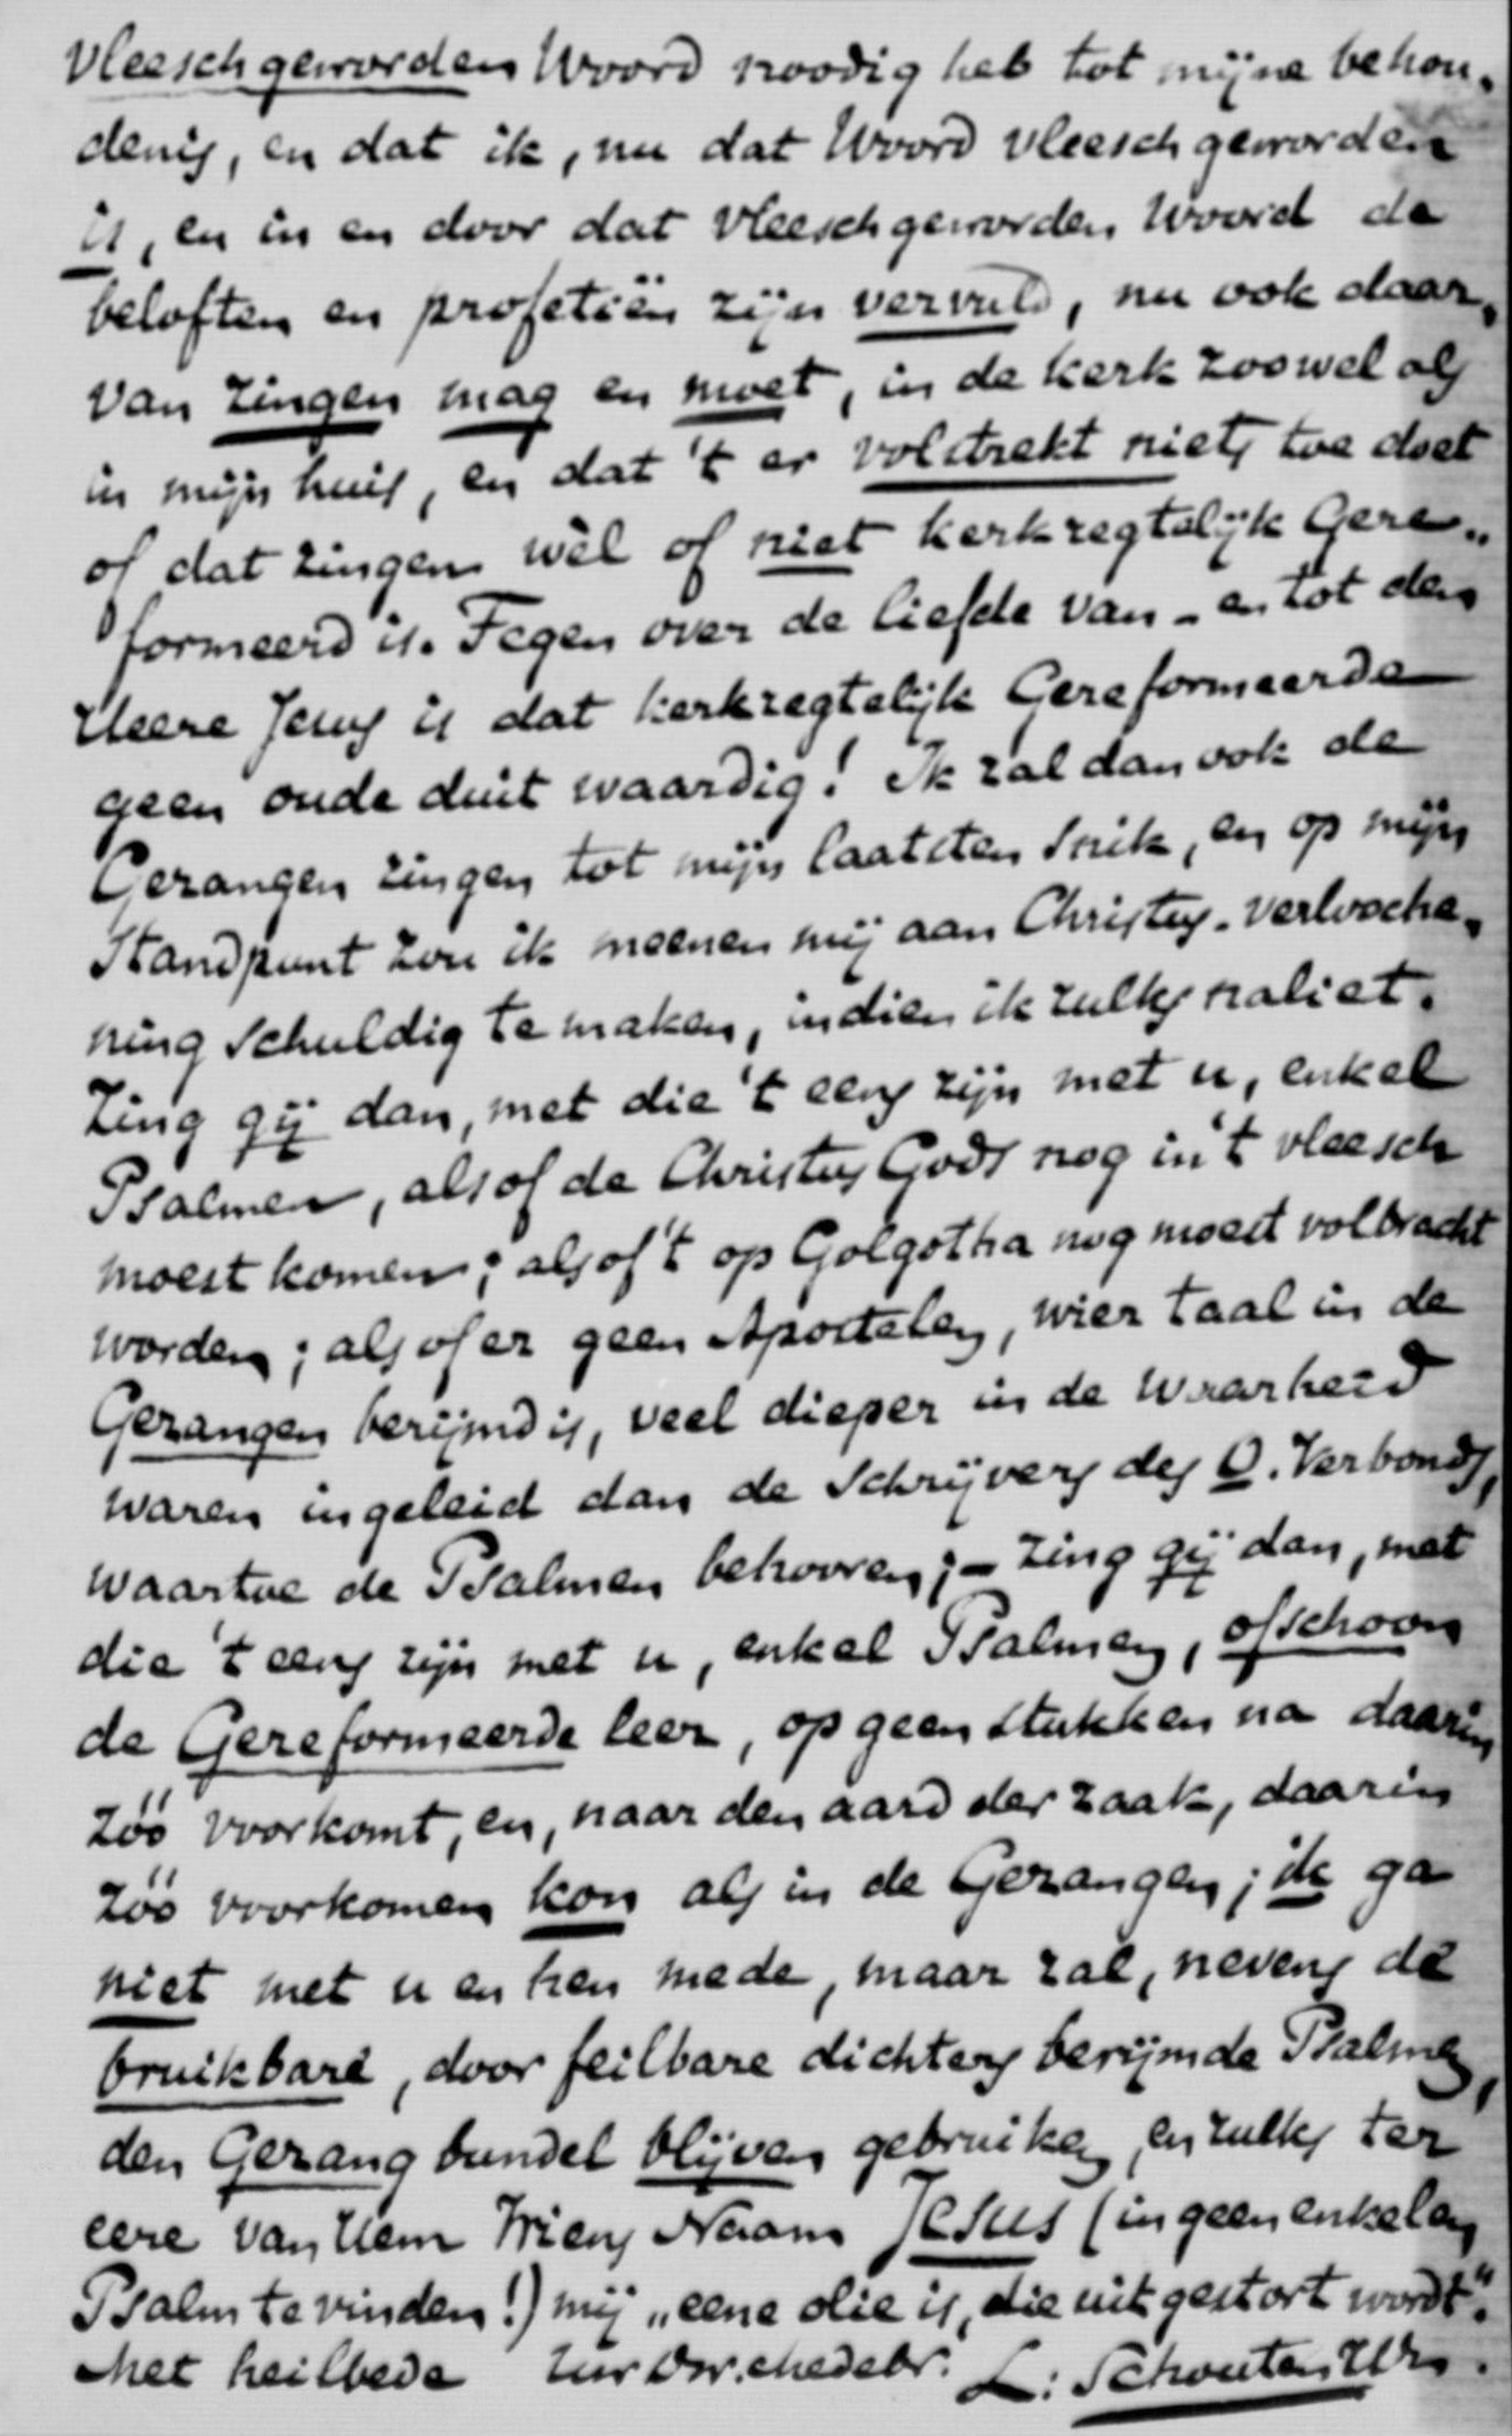 vleeschgeworden Woord noodig heb tot mijne behou„
denis, en dat ik, nu dat Woord vleesch geworden
is, en in en door dat vleeschgeworden Woord de
beloften en profetiën zijn vervuld, nu ook daar„
van zingen mag en moet, in de kerk zoowel als
in mijn huis, en dat 't er volstrekt niets toe doet
of dat zingen wèl of niet kerkregtelijk Gere„
formeerd is. Tegen over de liefde van - en tot den
Heere Jesus is dat kerkregtelijk Gereformeerde
geen oude duit waardig! Ik zal dan ook de
Gezangen zingen tot mijn laatsten snik, en op mijn
standpunt zou ik meenen mij aan Christus-verlooche„
ning schuldig te maken, indien ik zulks naliet.
Zing gij dan, met die 't eens zijn met u, enkel
Psalmen, alsof de Christus Gods nog in 't vleesch
moest komen; alsof 't op Golgotha nog moest volbracht
worden; alsof er geen Apostelen, wier taal in de
Gezangen berijmd is, veel dieper in de Waarheid
waren ingeleid dan de Schrijvers des O. Verbonds,
waartoe de Psalmen behooren; - zing gij dan, met
die 't eens zijn met u, enkel Psalmen, ofschoon
de Gereformeerde leer, op geen stukken na daarin
zóó voorkomt, en, naar den aard der zaak, daarin
zóó voorkomen kon als in de Gezangen; ik ga
niet met u en hen mede, maar zal, nevens de
bruikbare, door feilbare dichters berijmde Psalmen,
den Gezangbundel blijven gebruiken, en zulks ter
eere van Hem Wiens Naam Jesus (in geen enkelen
Psalm te vinden!) mij „eene olie is, die uitgestort wordt".
Met heilbede L: Schouten Hz.